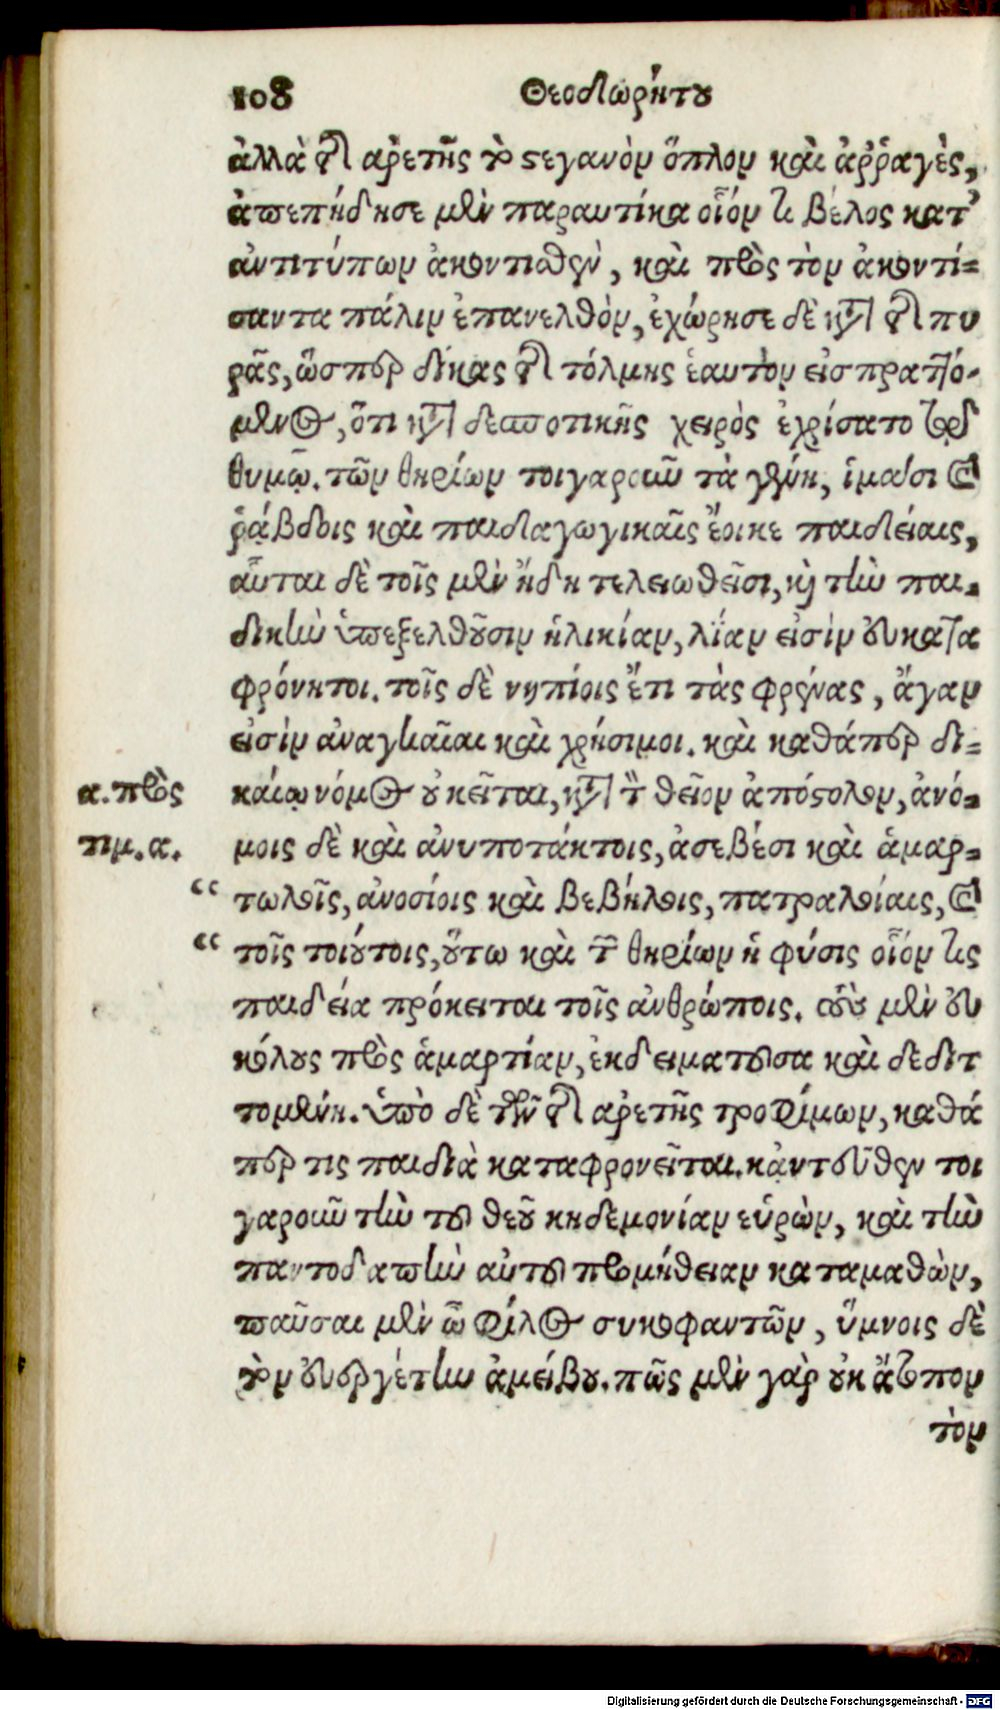 108 Θεοδωρήτου
ἀλλὰ τῆς ἀρετῆς τὸ στεγανὸν ὅπλον καὶ ἀῤῥαγὲς,
ἀπεπήδησε μὲν παραυτίκα οἷόν τι βέλος κατ'
ἀντιτύπων ἀκοντισθὲν, καὶ πρὸς τὸν ἀκοντί=
σαντα πάλιν ἐπανελθὸν, ἐχώρησε δὲ κατὰ τῆς πυ
ρᾶς, ὥσπερ δίκας τῆς τόλμης ἑαυτὸν εἰσπραττό-
μενος, ὅτι κατὰ δεσποτικῆς χειρὸς ἐχρίσατο τῷ
θυμῷ. τῶν θηρίων τοιγαροῦν τὰ γένη, ἱμᾶσι καὶ
ῥάβδοις καὶ παιδαγωγικαῖς ἔοικε παιδείαις,
αὗται δὲ τοῖς μὲν ἤδη τελειωθεῖσι, καὶ τὴν παι-
δικὴν ὑπεξελθοῦσιν ἡλικίαν, λίαν εἰσὶν εὐκατα
φρόνητοι. τοῖς δὲ νηπίοις ἔτι τὰς φρένας, ἄγαν
εἰσὶν ἀναγκαῖαι καὶ χρήσιμοι. καὶ καθάπερ δι=
α. πρὸς
τιμ. α.
καίῳ νόμος οὐ κεῖται, κατὰ τὸν θεῖον ἀπόστολον, ἀνό=
μοις δὲ καὶ ἀνυποτάκτοις, ἀσεβέσι καὶ ἁμαρ=
“ τωλοῖς, ἀνοσίοις καὶ βεβήλοις, πατραλοίαις, καὶ
“ τοῖς τοιούτοις, οὕτω καὶ τῶν θηρίων ἡ φύσις οἷόν τις
παιδεία πρόκειται τοῖς ἀνθρώποις. τοὺς μὲν εὐ
κόλους πρὸς ἁμαρτίαν, ἐκδειματοῦσα καὶ δεδιτ
τομένη. ὑπὸ δὲ τῶν τῆς ἀρετῆς τροφίμων, καθά
περ τις παιδιὰ καταφρονεῖται. κἀντεῦθεν τοι
γαροῦν τὴν τοῦ θεοῦ κηδεμονίαν εὑρὼν, καὶ τὴν
παντοδαπὴν αὐτοῦ προμήθειαν καταμαθὼν,
παῦσαι μὲν ὦ φίλος συκοφαντῶν, ὕμνοις δὲ
τὸν εὐεργέτην ἀμείβου. πῶς μὲν γὰρ οὐκ ἄτοπον
τὸν
Digitalisierung gefördert durch die Deutsche Forschungsgemeinschaft - DFG